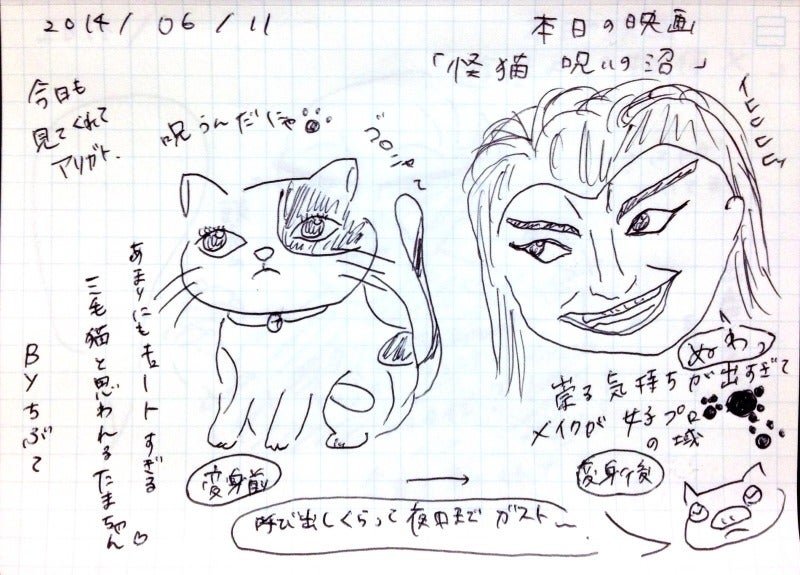 2014/06/11
本日の映画
「怪猫 呪いの沼」
今日も
見てくれて
アリガト.
呪うんだにゃ
ゴロにゃ〜
イヒヒヒヒ
あまりにもキュートすぎる
三毛猫と思われるたまちゃん♡
BYちぶて
ぬわっ
祟る気持ちが出すぎて
メイクが女子プロ
の域
変身前
→
変身後
呼び出しくらって夜中までガスト〜